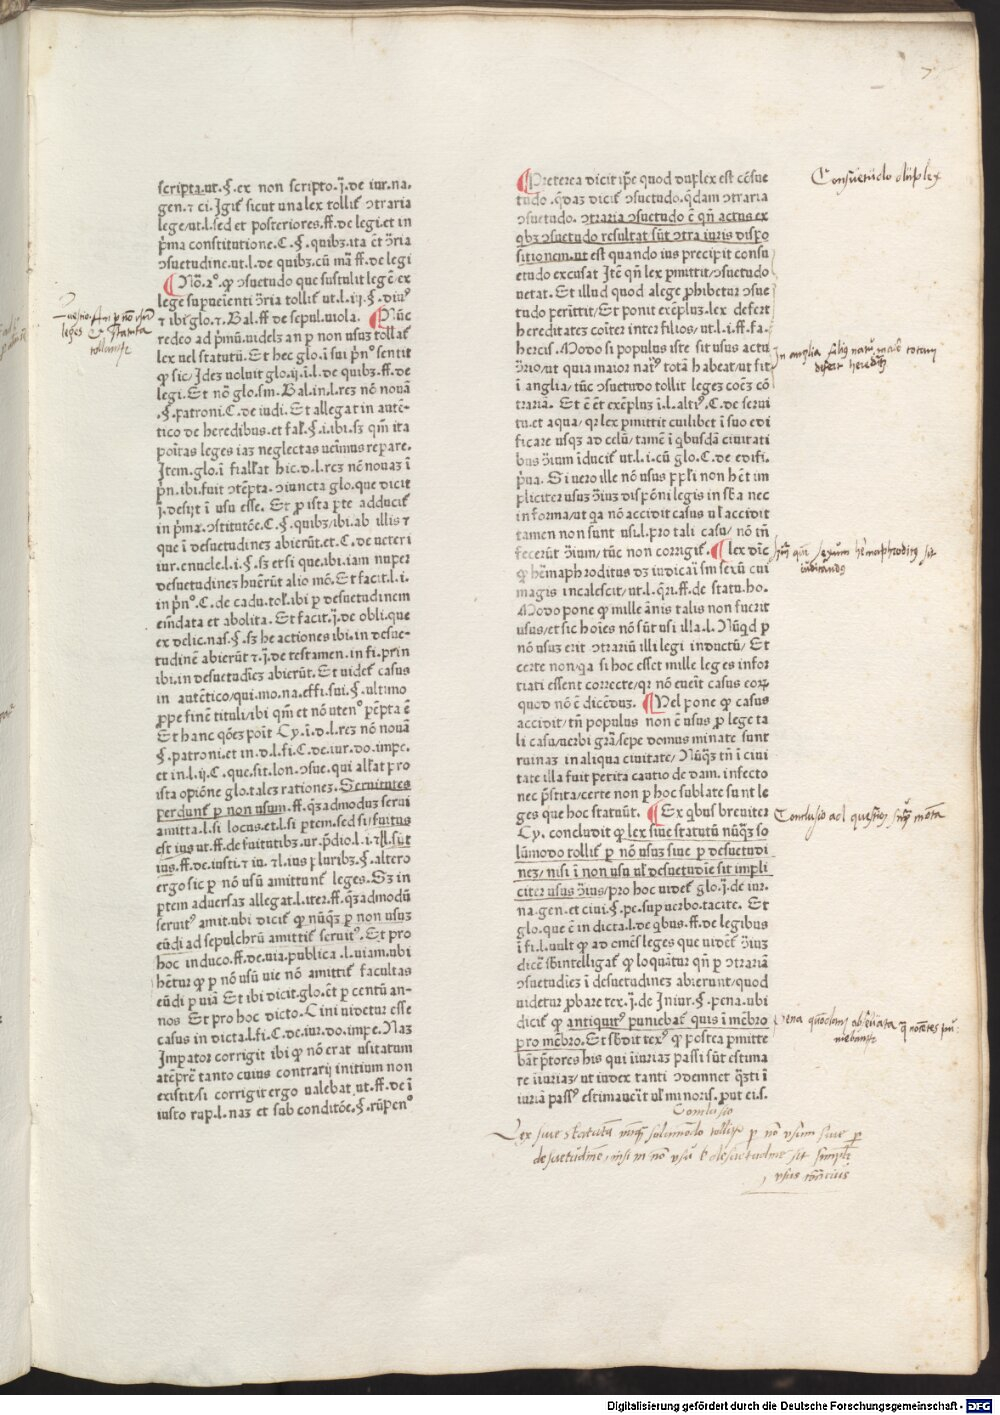 7
scripta.ut.§.ex non scripto.j̄.de iur.na.
gen.⁊ ci. Igit̃ sicut una lex tollit̃ ɔtraria
lege/ut.l.sed et posteriores.ff.de legi.et in
p̃ma constitutione.C.§.quibꝫ.ita ẽt ɔ̃ria
ɔsuetudine.ut.l.de quibꝫ.cũ mã ff.de legi
¶ Nõ.2°.ꝙ ɔsuetudo que sustulit legẽ/ex
lege supueĩenti ɔ̃ria tollit̃ ut.l.iij.§.diuꝰ
⁊ ibi glo.⁊.Bal.ff de sepul.uiola. ¶ Nũc
redeo ad p̃mũ.uidelꝫ an p non usuꝫ tollat̃
lex uel statutũ. Et hec glo.ĩ sui p̃n° sentit
ꝙ sic/ Idez uoluit glo.ij.ĩ.l.de quibꝫ.ff.de
legi. Et nõ glo.sm. Bal.in.l.reꝫ nõ nouã
.§.patroni.C.de iudi. Et allegat in autẽ-
tico de heredibus.et fal̃.§.i.ibi.sꝫ qm̃ ita
poĩtas leges iaꝫ neglectas uenimus repare.
Item.glo.ĩ fi allat hic.d.l.reꝫ nẽ nouaꝫ ĩ
pñ.ibi.fuit ɔtẽpta.ɔiuncta glo.que dicit
j̄.desijt ĩ usu esse. Et p ista pte adducit̃
in p̃ma.ɔstitutõe.C.§.quibꝫ/ibi.ab illis ⁊
que ĩ desuetudineꝫ abierũt.et.C.de ueteri
iur.enucle.l.i.§.sꝫ et si que.ibi.iam nuper
desuetudineꝫ huẽrũt alio mõ. Et facit.l.i.
in p̃n°.C.de cadu.tol.ibi p desuetudinem
em̃data et abolita. Et facit.j̄.de obli.que
ex delic.nas.§.sꝫ he actiones ibi.in desue-
tudinẽ abierũt ⁊.j̄.de testamen.in fi.prin
ibi.in desuetudĩeꝫ abierũt. Et uidet̃ casus
in autẽtico/qui.mo.na.effi.sui.§.ultimo
ꝓpe finẽ tituli/ibi qm̃ et nõ uten° pẽpta ẽ
Et hanc q̃õeꝫ põit Cy.ĩ.d.l.reꝫ nõ nouã
§.patroni.et in.d.l.fi.C.de.iur.do.impe.
et in.l.ij.C.que.sit.lon.ɔsue.qui allat pro
ista opiõne glo.taleꝫ rationeꝫ. Seruitutes
perdunt̃ p non usum.ff.q̃ꝫadmoduꝫ serui
amitta.l.si locus.et.l.si ptem.sed si/fuitus
est ius ut.ff.de fuitutibꝫ.ur.p̃dio.l.i.⁊ll.sũt
ius.ff.de.iusti.⁊ iu.⁊l.ius pluribꝫ.§.altero
ergo sic p nõ usũ amittunt̃ leges. Sꝫ in
ptem aduersaꝫ allegat.l.iter.ff.q̃ꝫadmodũ
seruitꝰ amit.ubi dicit̃ ꝙ nũq̃ꝫ p non usuꝫ
eũdi ad sepulchrũ amittit̃ seruitꝰ. Et pro
hoc induco.ff.de.uia.publica.l.uiam.ubi
hẽtur ꝙ p nõ usũ uie nõ amittit̃ facultas
eũdi p uiã Et ibi dicit.glo.ẽt p centũ an-
nos Et pro hoc dicto. Cini uidetur esse
casus in dicta.l.fi.C.de.iur.do.impe. Naꝫ
Imperator corrigit ibi ꝙ nõ erat usitatum
atẽp̃re tanto cuius contrarij initium non
existit/si corrigit ergo ualebat.ut.ff.de ĩ
iusto rup.l.naꝫ et sub conditõe.§.rũpen°
¶ Preterea dicit ip̃e quod duplex est cõsue
tudo.q̃daꝫ dicit̃ ɔsuetudo.q̃dam ɔtraria
ɔsuetudo. ɔtraria ɔsuetudo ẽ qñ actus ex
qbꝫ ɔsuetudo resultat sũt ɔtra iuris dispo
sitionem.ut est quando ius precipit consu
etudo excusat Itẽ qñ lex pmittit/ɔsuetudo
uetat. Et illud quod a lege ꝓhibetur ɔsue
tudo pẽrittit/Et ponit exẽpluꝫ.lex defert
hereditates coĩter inter filios/ut.l.i.ff.fa.
hercis. Modo si populus iste sit usus actu
ɔ̃rio/ut quia maior natꝰ totã habeat/ut fit
ĩ anglia/ tũc ɔsuetudo tollit legeꝫ coẽꝫ cõ
trariã. Et ẽ ẽt exẽpluꝫ ĩ.l.altiꝰ.C.de serui
tu.et aqua/ qꝛ lex pmittit cuilibet ĩ suo edi
ficare usqꝫ ad celũ/ tamẽ ĩ qbusdã ciuitati
bus ɔ̃ium ĩducit̃ ut.l.i.cũ glo.C.de edifi.
p̃ua. Si uero ille nõ usus ppl̃i non hẽt im
pliciter usuꝫ ɔ̃iuꝫ dispõni legis in sb̃a nec
in forma/ut qa nõ accidit casus ul̃ accidit
tamen non sunt usi.l.pro tali casu/ nõ tñ
fecerũt ɔ̃ium/ tũc non corrigit̃. ¶ lex dĩc
ꝙ hẽmaphroditus dꝫ iudicaĩ sm sexũ cui
magis incalescit/ut.l.q̃ri.ff.de statu.ho.
Modo pone ꝙ mille ãnis talis non fuerit
usus/et sic hoĩes nõ sũt usi illa.l. Nũqd p
nõ usuꝫ erit ɔtrariũ illi legi inductũ/ Et
certe non/qa si hoc esset mille leges infor
tiati essent correcte/qꝛ nõ eueĩt casus eoꝝ
quod nõ ẽ dicẽduꝫ. ¶ Uel pone ꝙ casus
accidit/ tñ populus non ẽ usus p lege ta
li casu/uerbi grã/sepe domus minate sunt
ruinaꝫ in aliqua ciuitate/ Nũq̃ꝫ tñ ĩ ciui
tate illa fuit petita cautio de dam.infecto
nec p̃stita/certe non p hoc sublate sunt le
ges que hoc statuũt. ¶ Ex qbus breuiter
Cy. concludit ꝙ lex siue statutũ nũq̃ꝫ so
lũmodo tollit̃ p nõ usuꝫ siue p desuetudi
neꝫ/ nisi ĩ non usu ul̃ desuetudĩe sit impli
citer usus ɔ̃ius/pro hoc uidet̃ glo.j̄.de iur.
na.gen.et ciui.§.pe.sup uerbo.tacite. Et
glo.que ẽ in dicta.l.de qbus.ff.de legibus
ĩ fi.l.uult ꝙ ad om̃es leges que uidẽt̃ ɔ̃iuꝫ
dicẽ sbintelligat̃ ꝙ loquãtur qñ p ɔtrariã
ɔsuetudĩeꝫ ĩ desuetudineꝫ abierunt/quod
uidetur ꝓbare tex.j̄.de Iniur.§.pena.ubi
dicit̃ ꝙ antiquitꝰ puniebat̃ quis ĩ mẽbro
pro mẽbro. Et sb̃dit texꝰ ꝙ postea pmitte
bãt p̃tores his qui iiuriaꝫ passi sũt estima
re iiuriaꝫ/ ut iudex tanti ɔdemnet q̃ꝫti ĩ
iuriã passꝰ estimaueĩt ul̃ minoris.put ei.s.
Consuetudo duplex
Questio. An p nõ usũ
leges et statuta
tollunt̃
In anglia filius natu maior totam
difert heredit̃
Conclusio ad questionẽ
Pena quondam
niebant̃
Conclusio
Lex siue statutũ nunq̃ solummodo tollit̃ p nõ usum siue p
desuetudinẽ, nisi in nõ usu l̃ desuetudine sit simplr
usus contrarius
Digitalisierung gefördert durch die Deutsche Forschungsgemeinschaft - DFG